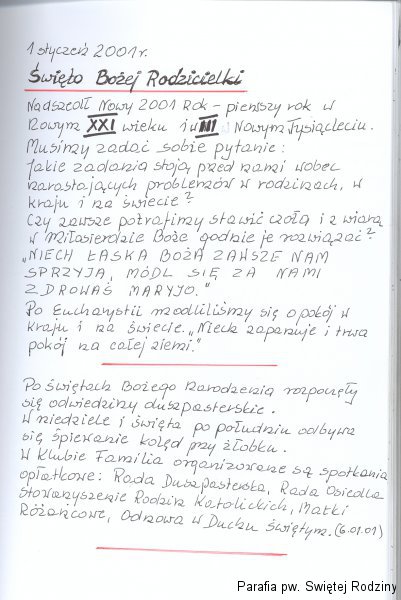 1 styczeń 2001r.
Święto Bożej Rodzicielki
Nadszedł Nowy 2001 Rok - pierwszy rok w
Nowym XXI wieku i w III Nowym Tysiącleciu.
Musimy zadać sobie pytanie:
Jakie zadania stoją przed nami wobec
narastających problemów w rodzinach, w
kraju i na świecie?
Czy zawsze potrafimy stawić czoła i z wiarą
w Miłosierdzie Boże godnie je rozwiązać?
„NIECH ŁASKA BOŻA ZAWSZE NAM
SPRZYJA, MÓDL SIĘ ZA NAMI
ZDROWAŚ MARYJO."
Po Eucharystii modliliśmy się o pokój w
kraju i na świecie. „Niech zapanuje i trwa
pokój na całej ziemi."
Po świętach Bożego Narodzenia rozpoczęły
się odwiedziny duszpasterskie.
W niedziele i święta po południu odbywa
się śpiewanie kolęd przy żłobku.
W Klubie Familia organizowane są spotkania
opłatkowe: Rada Duszpasterska, Rada Osiedla
Stowarzyszenie Rodzin Katolickich, Matki
Różańcowe, Odnowa w Duchu Świętym. (6.01.01)
Parafia pw. Świętej Rodziny